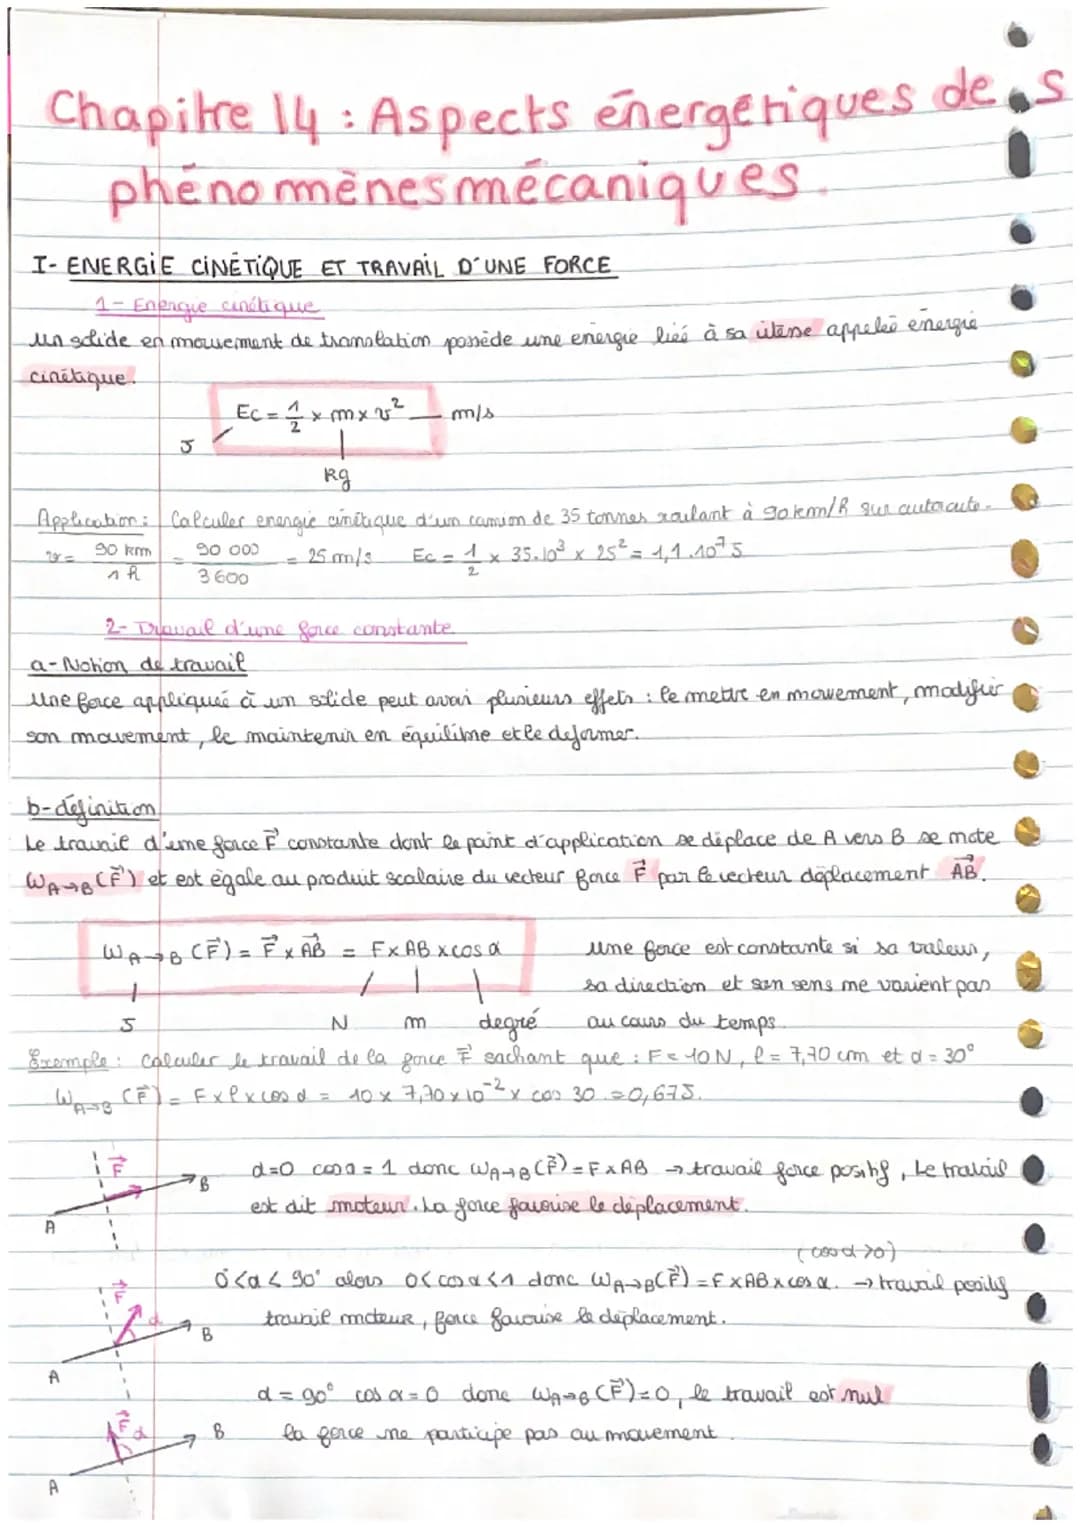 Chapitre 14 : Aspects énergétiques des
phénomènes mécaniques.
I- ENERGIE CINÉTIQUE ET TRAVAIL D'UNE FORCE
1- Energie cinétique
un solide en mouvement de translation possède une énergie liée à sa vitesse appelée énergie
cinétique.
Ec = 1/2 × m × v² — m/s
J
kg
Application : Calculer energie cinétique d'un camion de 35 tonnes roulant à 90 km/h sur autoroute.
v = 90 km / 1 h = 90 000 / 3600 = 25 m/s Ec = 1/2 × 35.10³ × 25² = 1,1.10⁷ J
2- Travail d'une force constante
a- Notion de travail
Une force appliquée à un solide peut avoir plusieurs effets : le mettre en mouvement, modifier
son mouvement, le maintenir en équilibre et le déformer.
b- définition
Le travail d'une force F⃗ constante dont le point d'application se déplace de A vers B se note
W A→B (F⃗) et est égale au produit scalaire du vecteur force F⃗ par le vecteur déplacement AB⃗.
W A→B (F⃗) = F⃗ × AB⃗ = F × AB × cos α
J N m degré
une force est constante si sa valeur,
sa direction et son sens ne varient pas
au cours du temps.
Exemple : Calculer le travail de la force F⃗ sachant que : F = 10 N, l = 7,70 cm et α = 30°
W A→B (F⃗) = F × l × cos α = 10 × 7,70 × 10⁻² × cos 30 = 0,67 J.
F⃗ A B
α=0 cos α = 1 donc W A→B (F⃗) = F × AB → travail force positif, Le travail
est dit moteur. La force favorise le déplacement.
(cos α > 0)
0° < α < 90° alors 0 < cos α < 1 donc W A→B (F⃗) = F × AB × cos α. → travail positif
travail moteur, force favorise le déplacement.
F⃗ α A B
α = 90° cos α = 0 donc W A→B (F⃗) = 0, le travail est nul
la force ne participe pas au mouvement.
F⃗ α A B